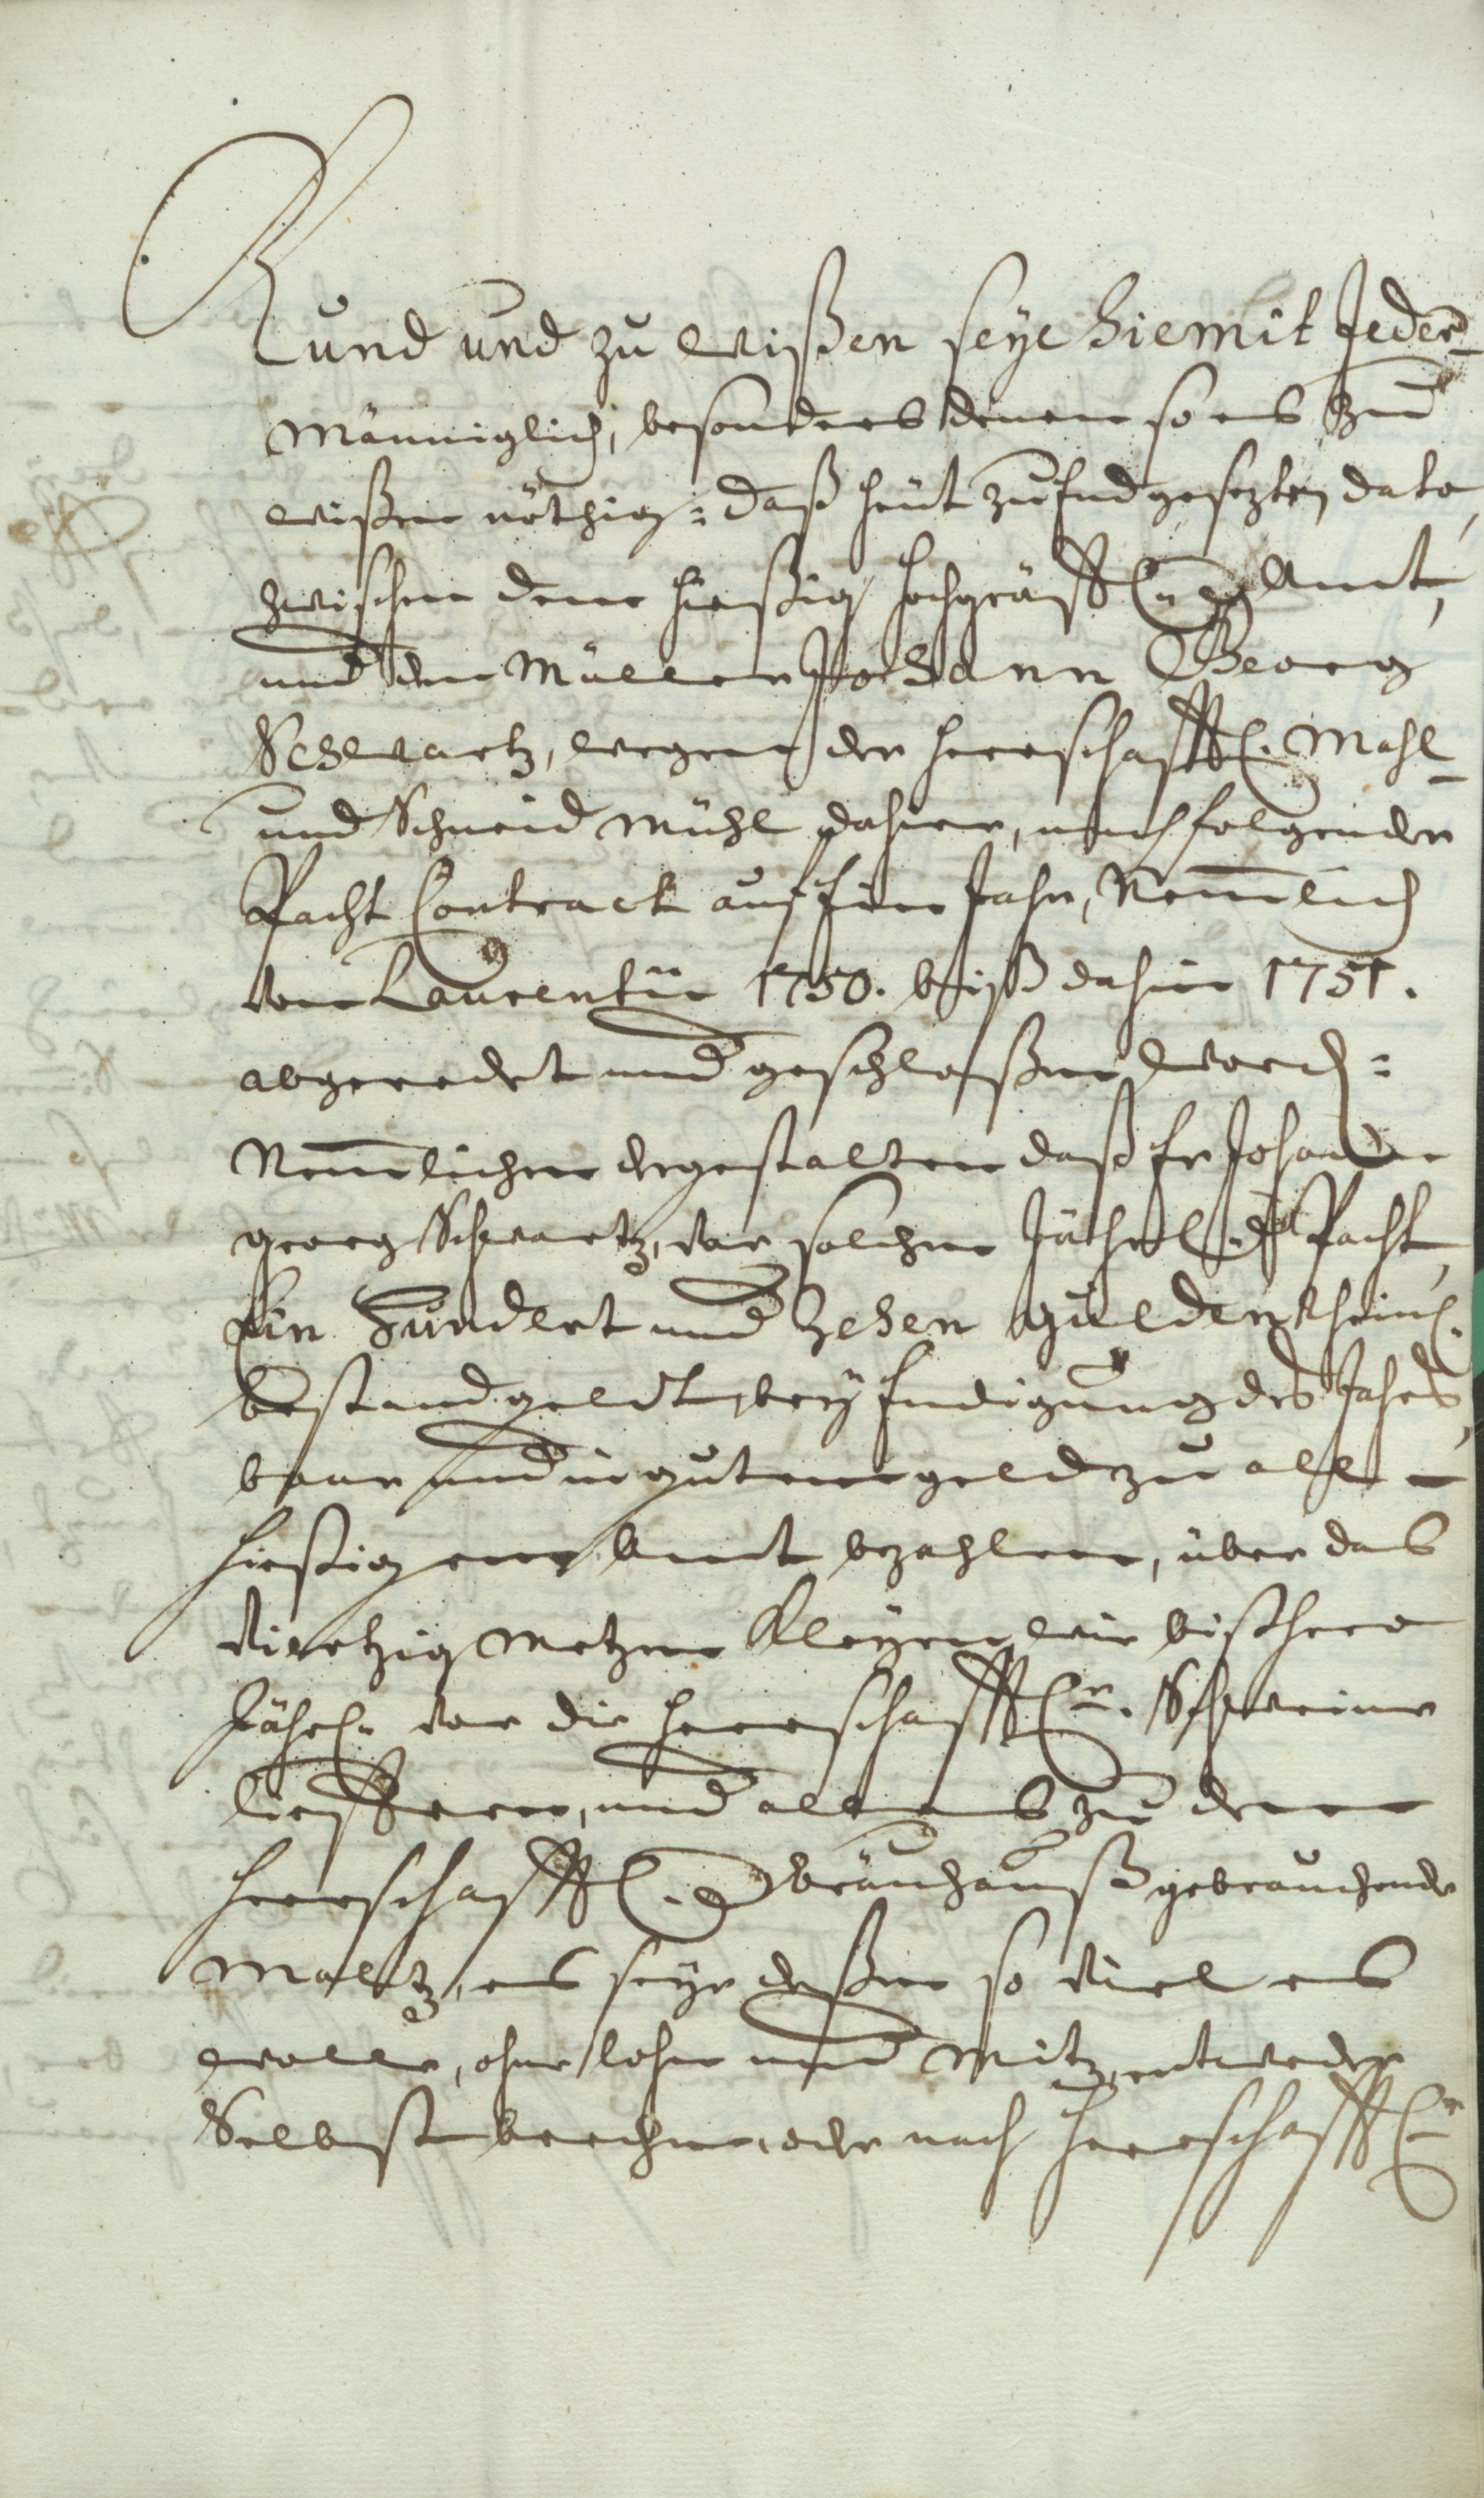 Kund und zu wißen seye hiemit Jeder-
männiglich, besonders denen so es zu
wißen nöthig: daß heut zu End gesezten dato,
zwischen dem hießig hochgräffl. Amt,
und dem Müller Johann Georg
Schwartz, wegen der herrschafftl. Mahl-
und Schneid Mühl dahier, nachfolgender
Pacht Contract auf Ein Jahr, Nemlich
von Laurentii 1750. biß dahin 1751.
abgeredet und geschloßen word:
Nemlichen dergestalten daß Er Johann
georg Schwartz, vor solchen Jährl. Pacht,
Ein Hundert und Zehen gulden Rheinl.
bestandgeldt, bey Endigung des Jahrs,
baar und in gutem geld zu all-
hießigem Amt bezahlen, über das
Viertzig Metzen Kleyen wie bißhero
Jährl. vor die herrschafftl. Schweine
lieffern, und alles zu dem
herrschafftl. Bräuhauß gebrauchende
Maltz, es seye deßen so viel es
wolle, ohne lohn und Mitz, entweder
Selbst brechen, oder nach herrschafftl.